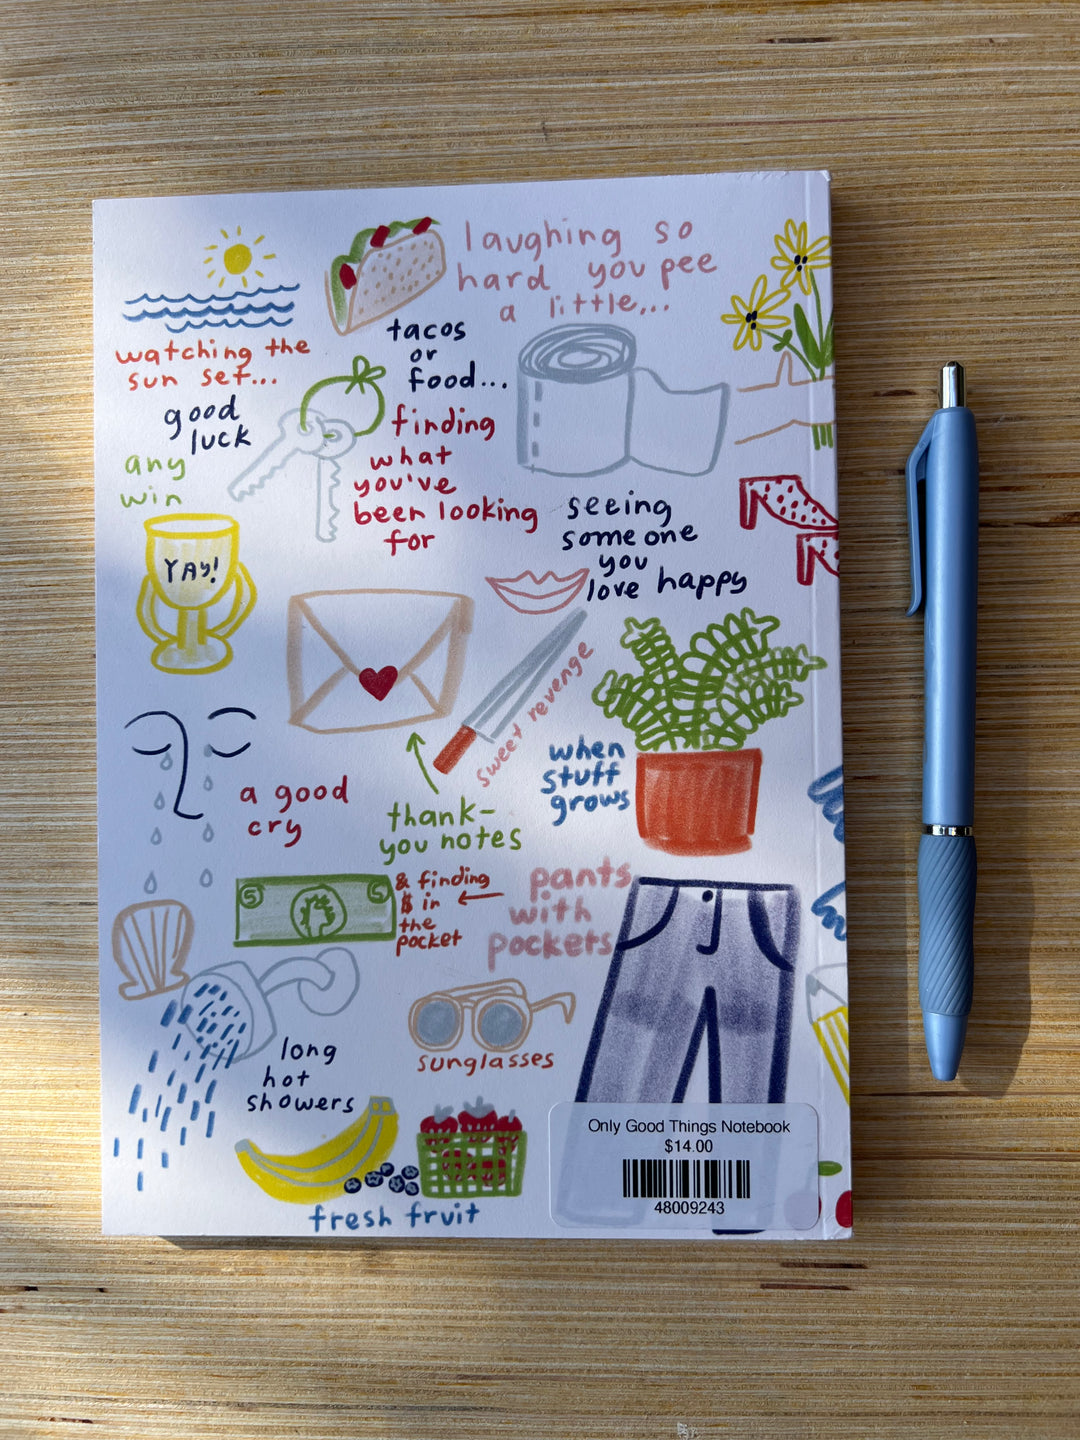 laughing so
hard you pee
a little...
tacos
or
food...
watching the
sun set...
good
luck
any
win
YAY!
finding
what
you've
been looking
for
seeing
someone
you
love happy
sweet revenge
when
stuff
grows
a good
cry
thank-
you notes
5
5
& finding
$ in
the
pocket
pants
with
pockets
sunglasses
long
hot
showers
fresh fruit
Only Good Things Notebook
$14.00
48009243